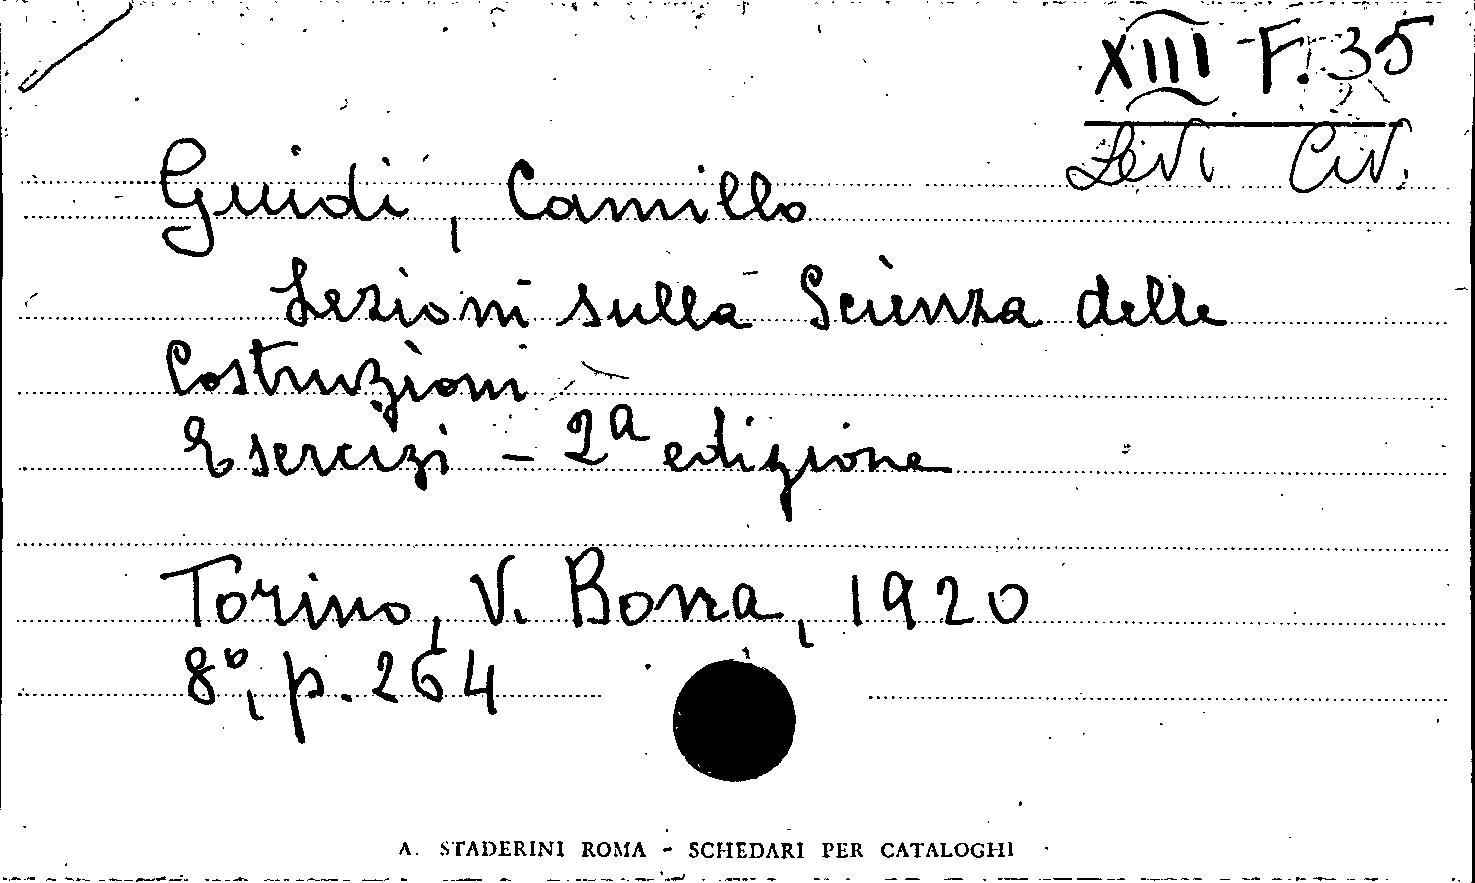 XIII F. 35
Levi Civ.
Guidi, Camillo
Lezioni sulla Scienza delle
Costruzioni
Esercizi - 2a edizione
Torino, V. Bona, 1920
8°, p. 264
A. STADERINI ROMA - SCHEDARI PER CATALOGHI